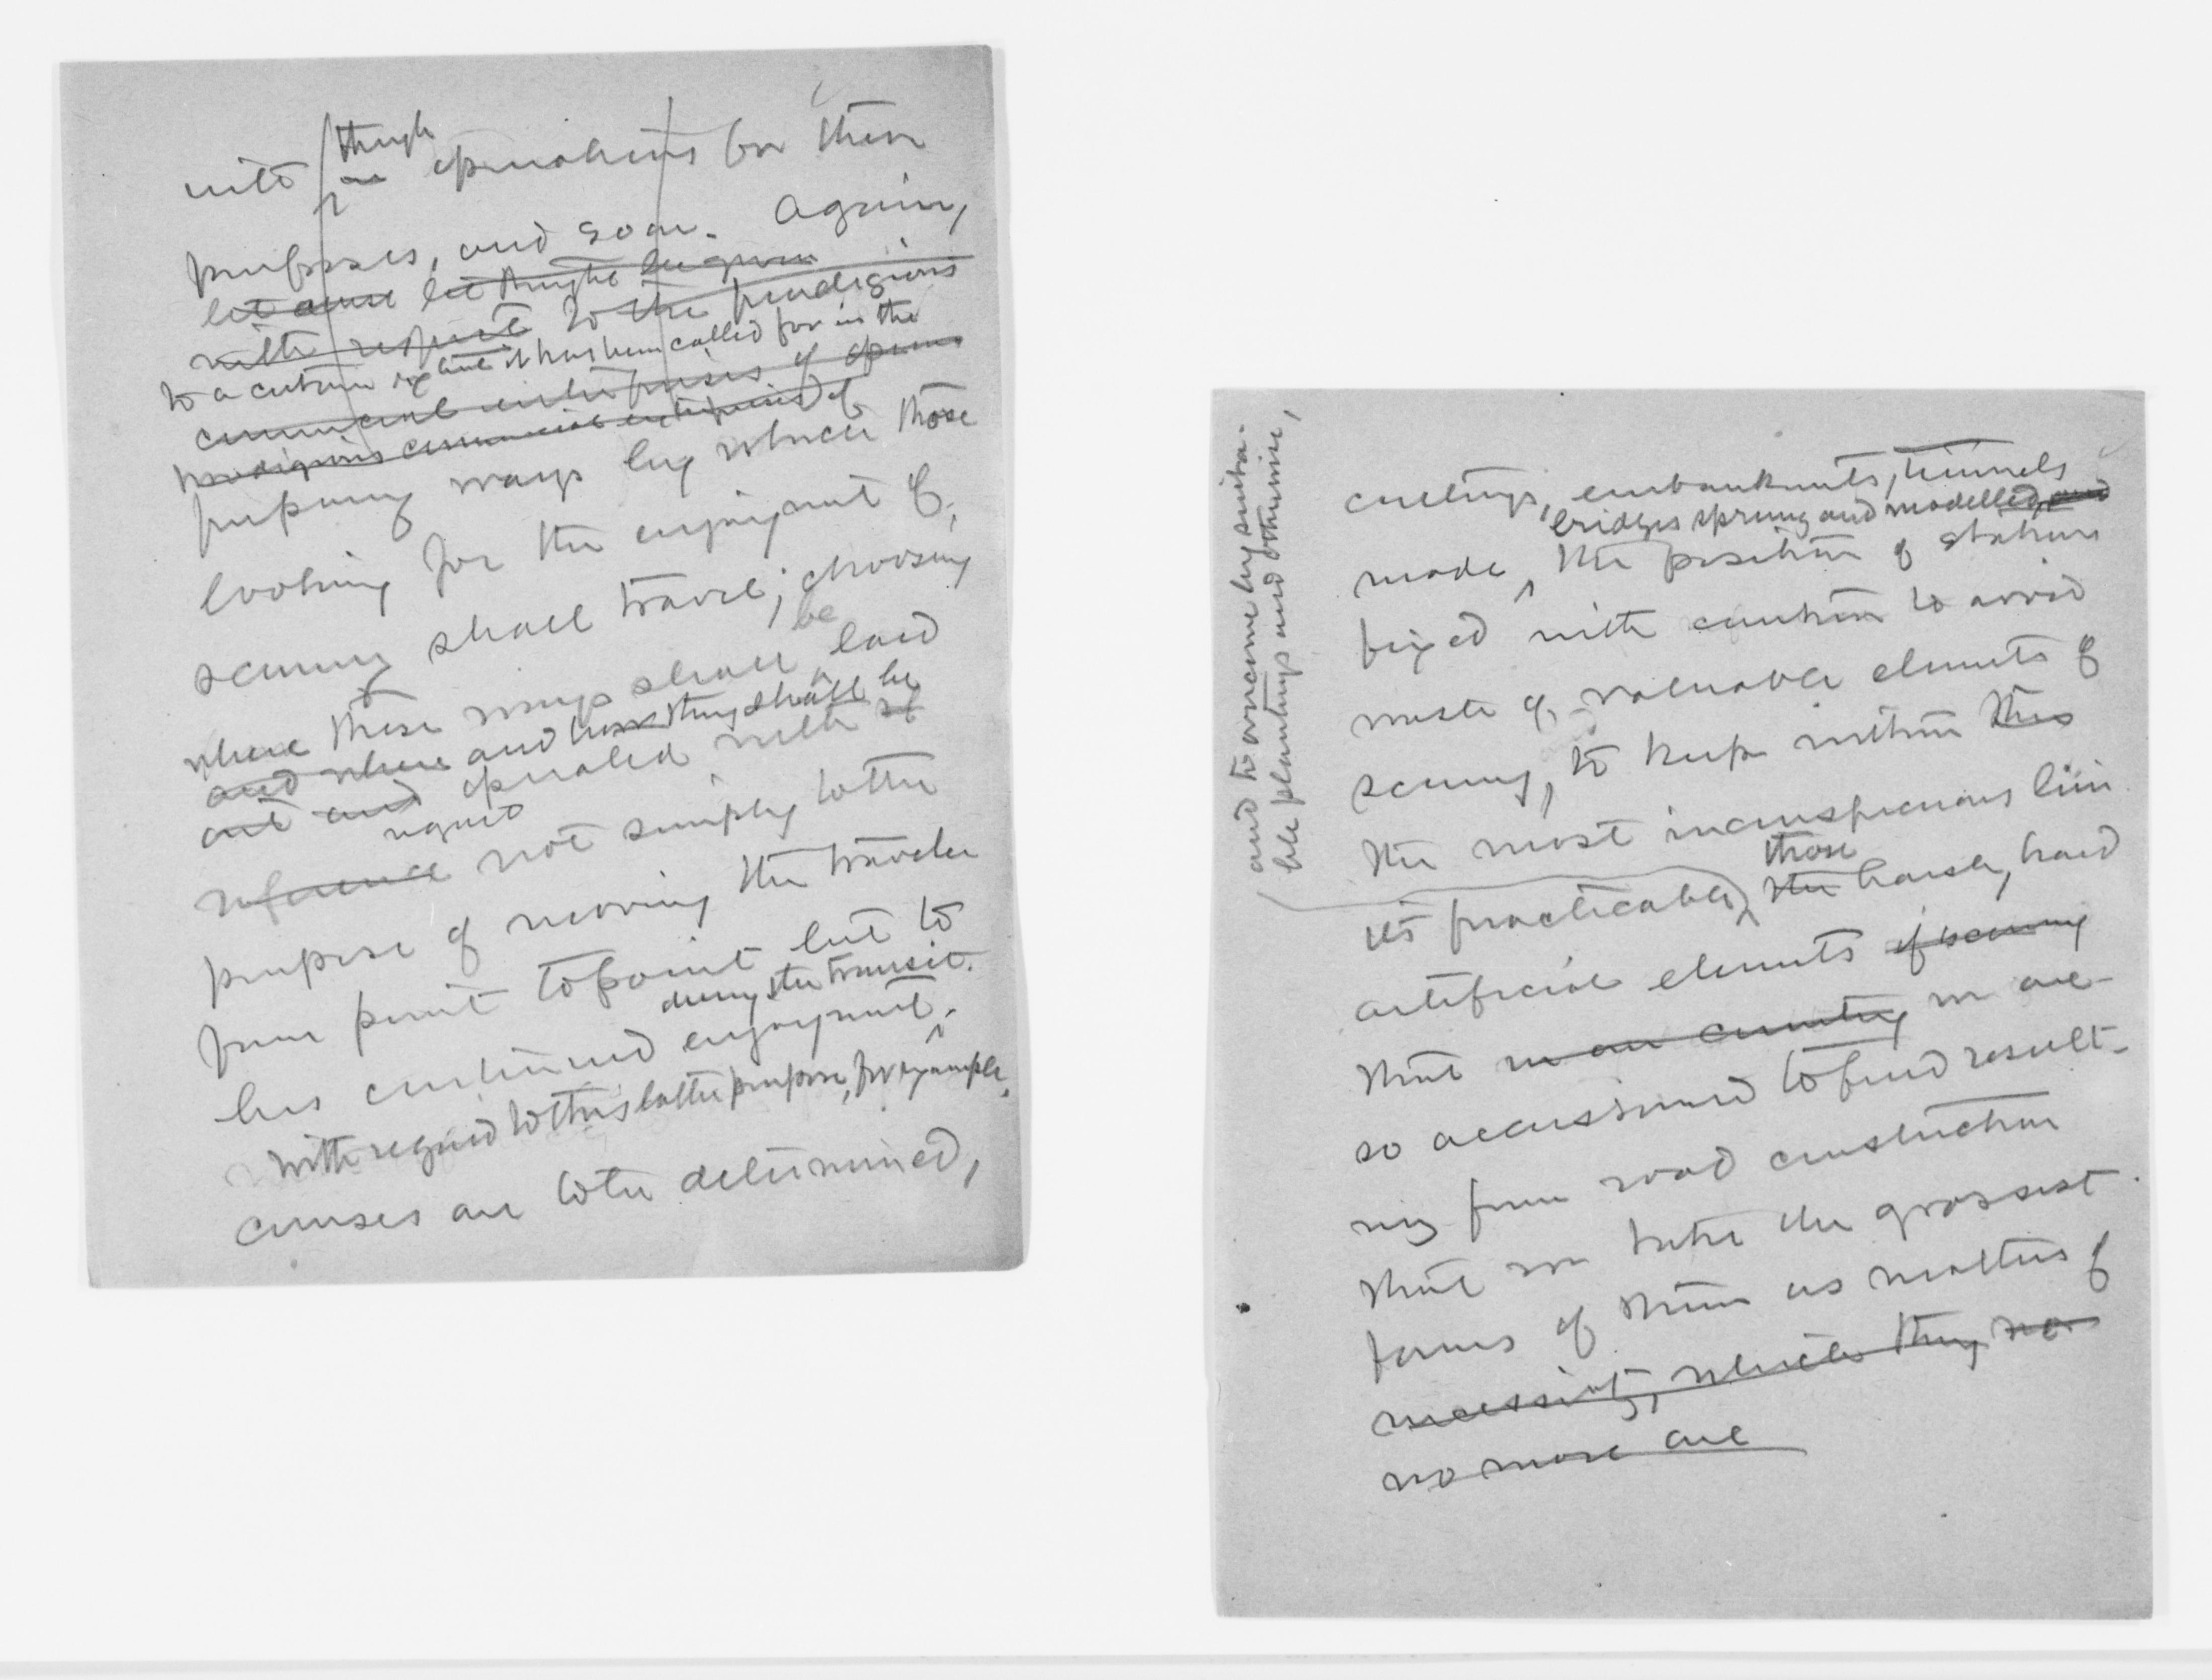 though
into an operations for their
purposes, and so on. Again,
let acute let thought be given
with respect to the prodigious
to a certain but it has been called for in the
commercial enterprises of opening
prodigious commercial enterprises of
preparing ways by which those
looking for the enjoyment of
scenery shall travel; choosing
be
where these ways shall laid
and where and how they shall be
out and operated with
regard
reference not simply to the
purpose of moving the traveler
from point to point but to
during the transit.
his continued enjoyment.
With regard to this latter purpose, for example,
courses are to be determined,
cuttings, embankments, tunnels
bridges sprung and modelled, and
made, the position of stations
fixed with caution to avoid
waste of valuable elements of
scenery, to keep within the
the most inconspicuous lim
those
its practicable, the harsh, hard
artificial elements of scenery
that in our country we are
so accustomed to find result-
ing from road construction
that we take the grossest
forms of them as matters of
necessity, which they no
no more are
and to overcome by suita-
ble plantings and otherwise,